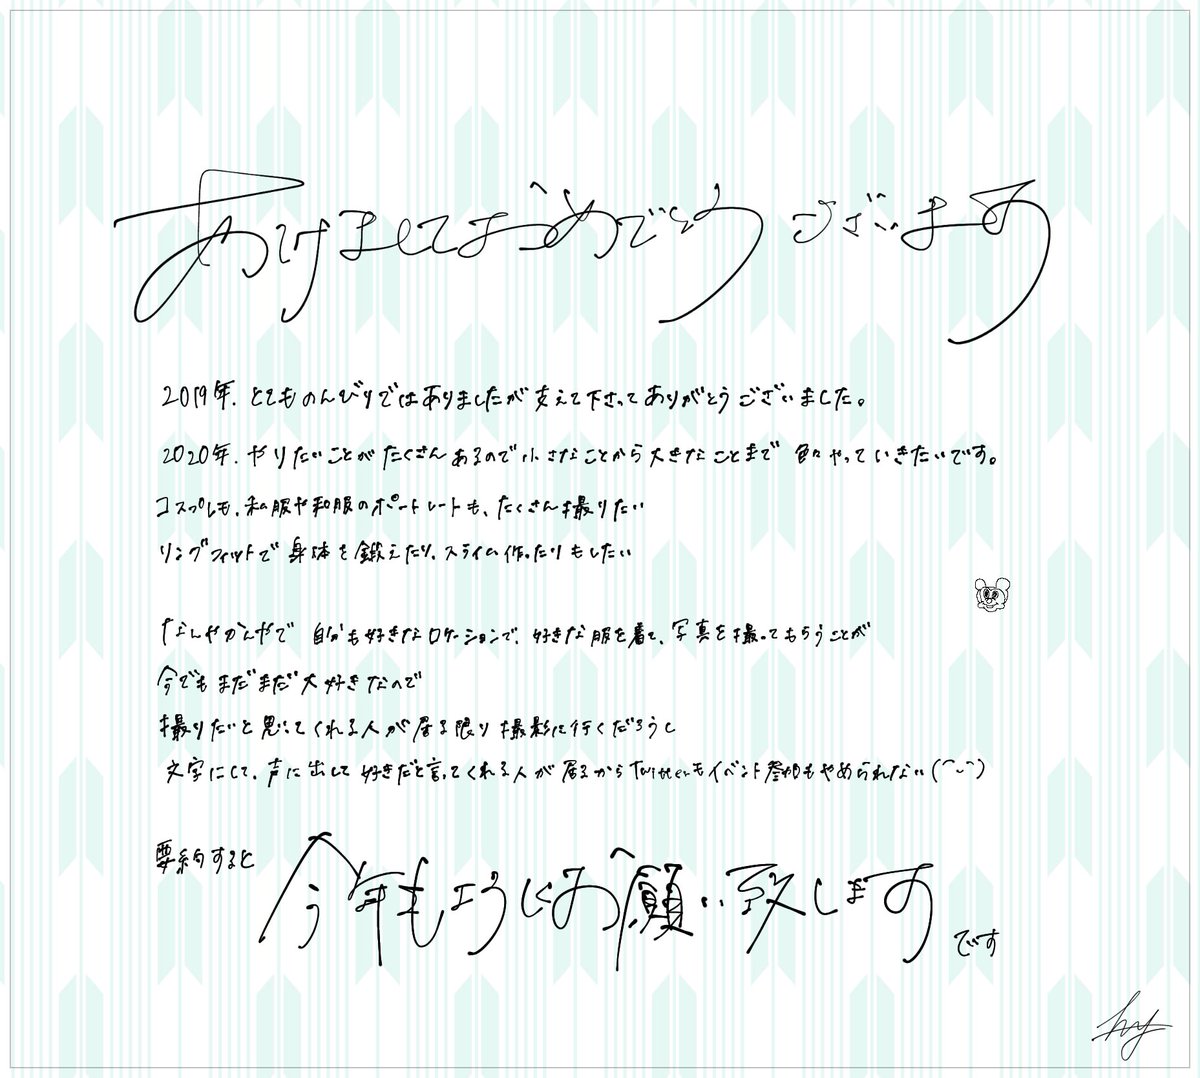 あけましておめでとうございます
2019年、とてものんびりではありましたが支えて下さってありがとうございました。
2020年、やりたいことがたくさんあるので小さなことから大きなことまで色々やっていきたいです。
コスプレも、私服や和服のポートレートも、たくさん撮りたい
リングフィットで身体を鍛えたり、スライム作ったりもしたい
なんやかんやで自分も好きなロケーションで、好きな服を着て、写真を撮ってもらうことが
今でもまだまだ大好きなので
撮りたいと思ってくれる人が居る限り撮影に行くだろうし
文字にして、声に出して好きだと言ってくれる人が居るからTwitterもイベント参加もやめられない(^-^)
要約すると
今年もよろしくお願い致します
です